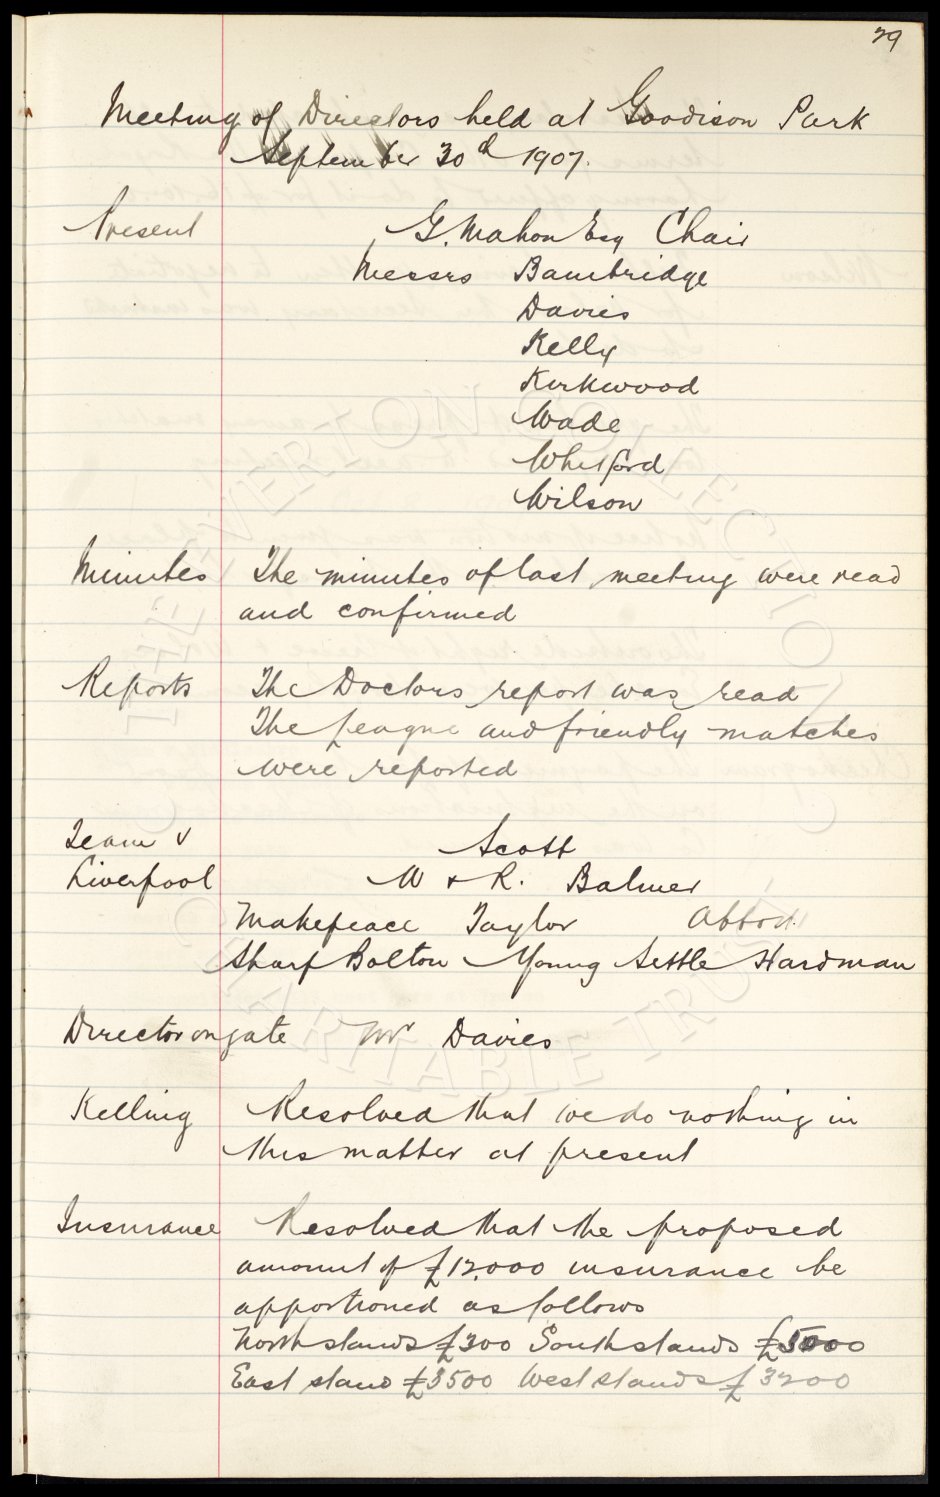 29
Meeting of Directors held at Goodison Park
September 30th 1907.
Present G. Mahon Esq Chair
Messrs Bainbridge
Davies
Kelly
Kirkwood
Wade
Whitford
Wilson
Minutes The minutes of last meeting were read
and confirmed
Reports The Doctors report was read
The League and friendly matches
were reported
Team v Scott
Liverpool W & R. Balmer
Makepeace Taylor Abbott
Sharp Bolton Young Settle Hardman
Director on gate Mr Davies
Kelling Resolved that we do nothing in
this matter at present
Insurance Resolved that the proposed
amount of £12,000 insurance be
apportioned as follows
North stands £300 South stands £5000
East stand £3500 West stands £3200
THE EVERTON COLLECTION
CHARITABLE TRUST